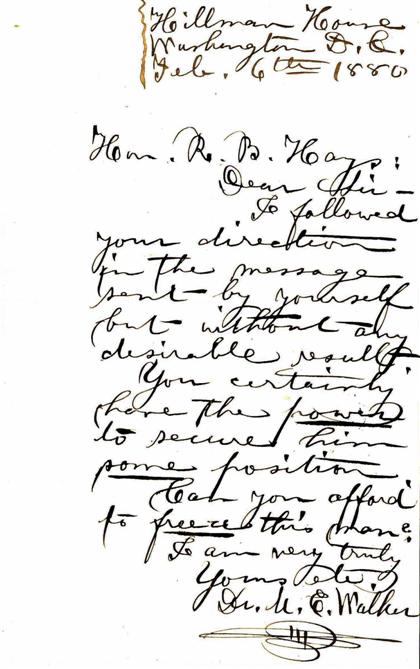 Hillman House
Washington D.C.
Feb. 6th 1880
Hon. R. B. Hays:
Dear Sir —
I followed
your direction
in the message
sent by yourself
but without any
desirable result.
You certainly
have the power
to secure him
some position
Can you afford
to freeze this man?
I am very truly
Yours etc.
Dr. M. E. Walker